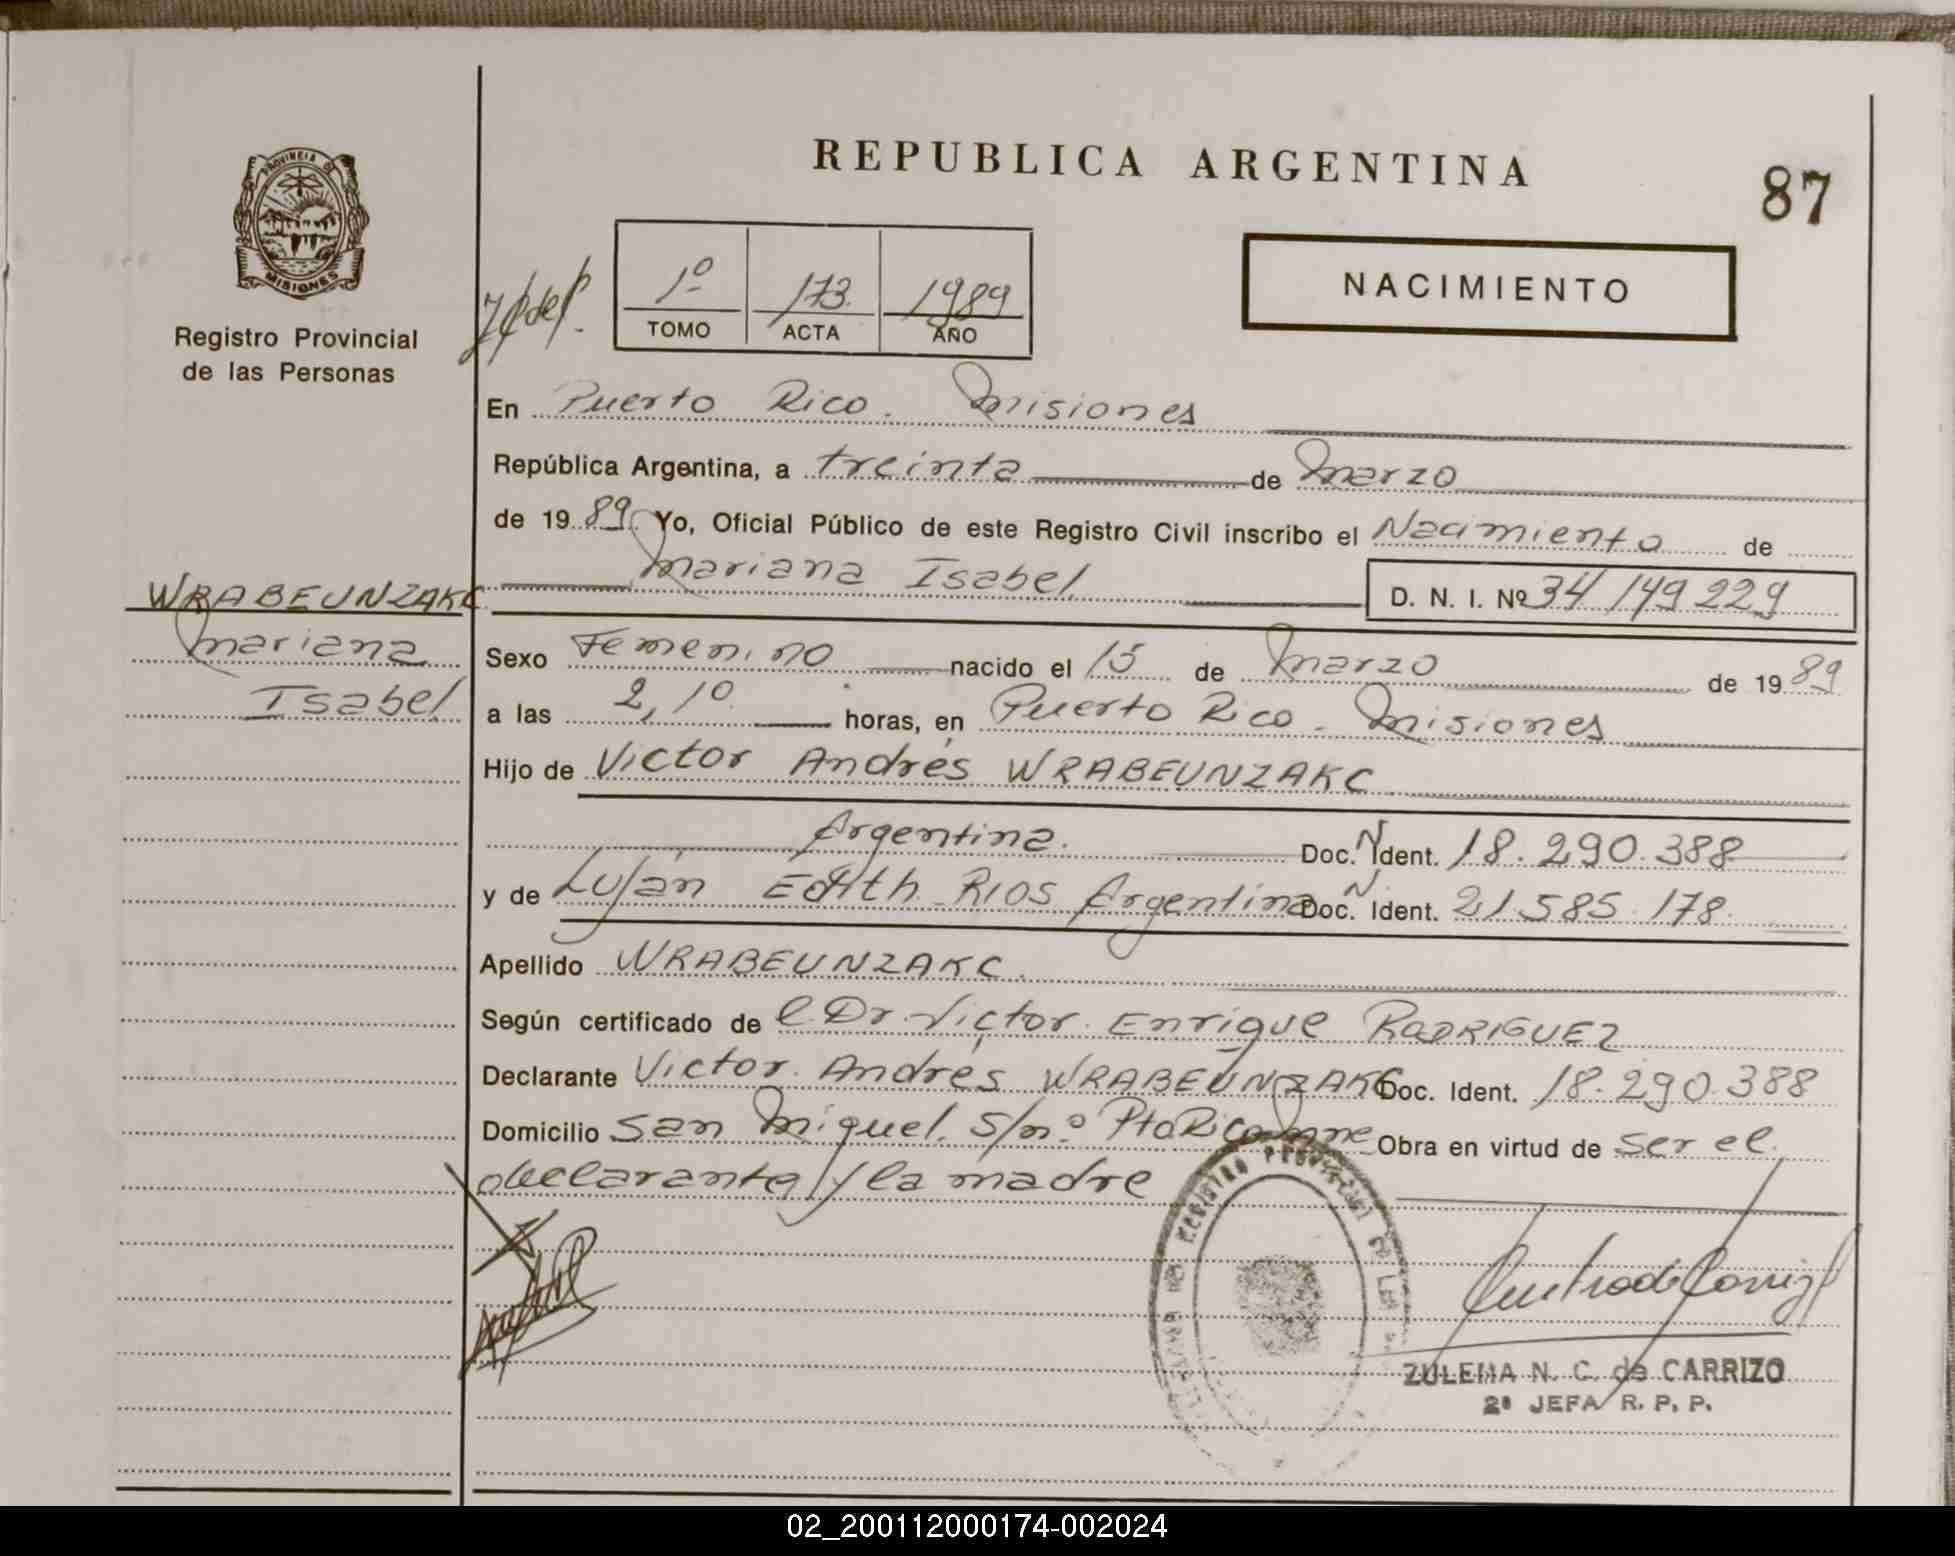 REPUBLICA ARGENTINA
87
PROVINCIA DE
MISIONES
Registro Provincial
de las Personas
1º 173. 1989
TOMO ACTA AÑO
NACIMIENTO
En Puerto Rico. Misiones
República Argentina, a treinta de Marzo
de 1989 Yo, Oficial Público de este Registro Civil inscribo el Nacimiento de
Mariana Isabel D. N. I. Nº 34 149 229
WRABEUNZAKC
Mariana
Isabel
Sexo Femenino nacido el 15 de Marzo de 1989
a las 2,10 horas, en Puerto Rico. Misiones
Hijo de Victor Andrés WRABEUNZAKC
Argentina. Doc. N Ident. 18.290.388
y de Luján Edith RIOS Argentina Doc. N Ident. 21.585.178.
Apellido WRABEUNZAKC.
Según certificado de l Dr. Victor Enrique RODRIGUEZ
Declarante Victor Andrés WRABEUNZAKC Doc. Ident. 18.290.388
Domicilio San Miguel s/nº Pto Rico Mnes Obra en virtud de ser el
declarante y la madre
REGISTRO PROVINCIAL DE LAS
ZULEMA N. C. de CARRIZO
2ª JEFA R. P. P.
02_200112000174-002024